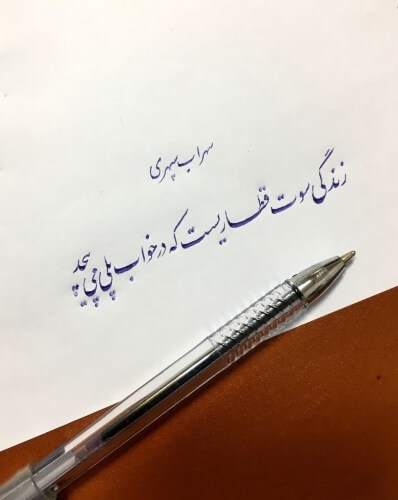 سهراب سپهری
زندگی سوت قطاریست که در خواب پلی می پیچد